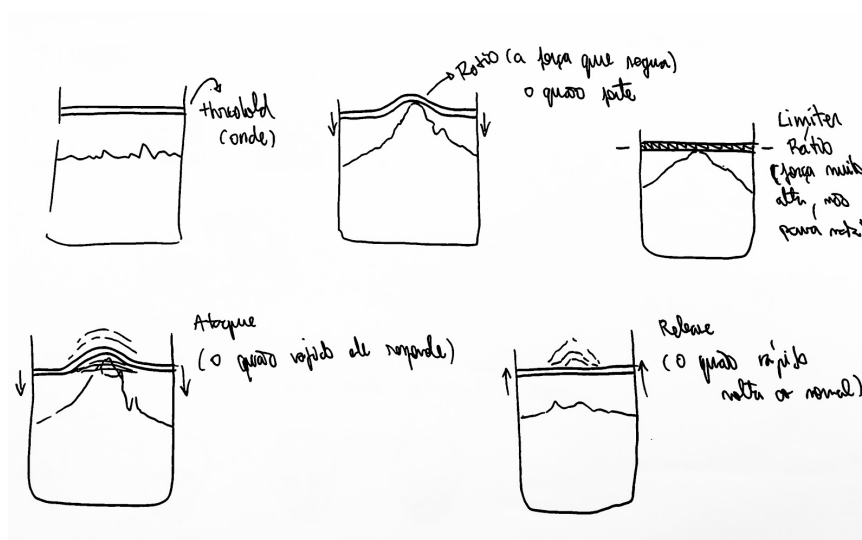 threshold
(onde)
Ratio (a força que segura)
o quão forte
Limiter
Ratio
(força muito
alta, não
para
Ataque
(o quão rápido ele responde)
Release
(O quão rápido
volta ao normal)